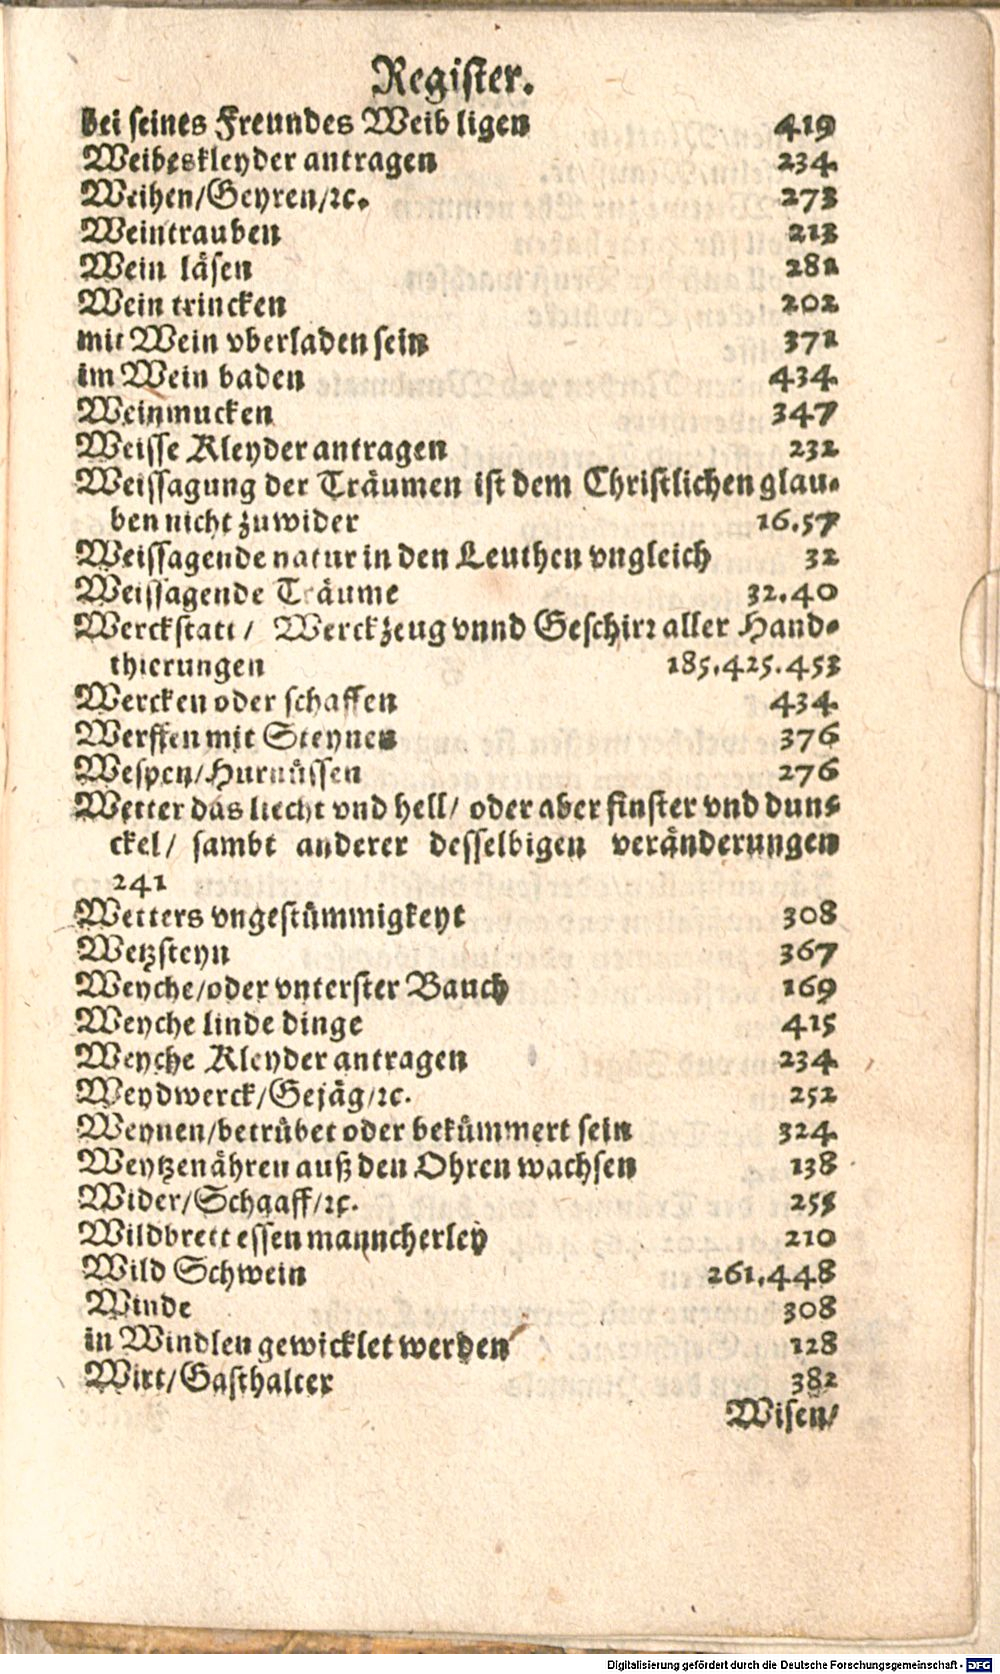 Register.
bei seines Freundes Weib ligen 419
Weibeskleyder antragen 234
Weihen/Geyren/ꝛc. 273
Weintrauben 213
Wein läsen 281
Wein trincken 202
mit Wein vberladen sein 372
im Wein baden 434
Weinmucken 347
Weisse Kleyder antragen 232
Weissagung der Träumen ist dem Christlichen glau-
ben nicht zuwider 16.57
Weissagende natur in den Leuthen vngleich 32
Weissagende Träume 32.40
Werckstatt/ Werckzeug vnnd Geschirꝛ aller Hand-
thierungen 185.425.453
Wercken oder schaffen 434
Werffen mit Steynen 376
Wespen/Hurnüssen 276
Wetter das liecht vnd hell/ oder aber finster vnd dun-
ckel/ sambt anderer desselbigen veränderungen
241
Wetters vngestümmigkeyt 308
Wetzsteyn 367
Weyche/oder vnterster Bauch 169
Weyche linde dinge 415
Weyche Kleyder antragen 234
Weydwerck/Gejäg/ꝛc. 252
Weynen/betrübet oder bekümmert sein 324
Weytzenähren auß den Ohren wachsen 138
Wider/Schaaff/ꝛc. 255
Wildbrett essen manncherley 210
Wild Schwein 261.448
Winde 308
in Windlen gewicklet werden 128
Wirt/Gasthalter 382
Wisen/
Digitalisierung gefördert durch die Deutsche Forschungsgemeinschaft - DFG